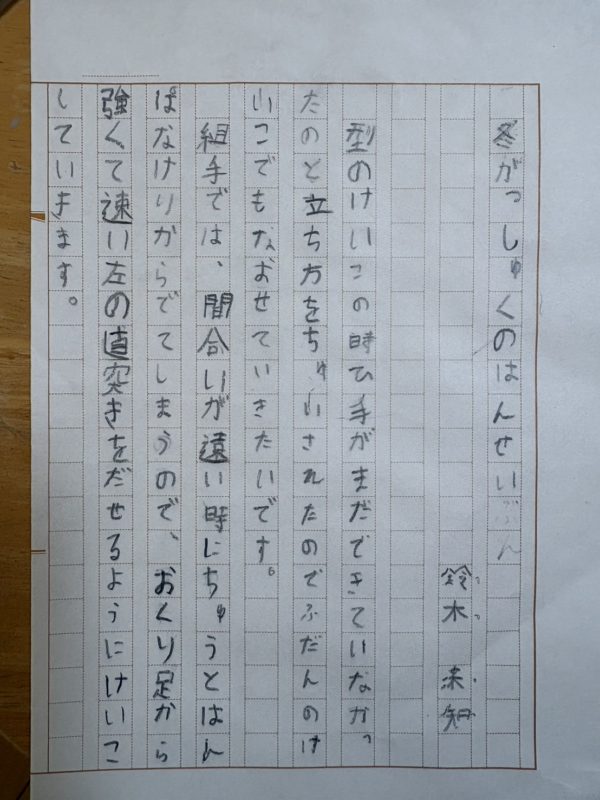 冬がっしゅくのはんせいぶん
鈴木 未知
型のけいこの時ひ手がまだできていなかっ
たのと立ち方をちゅいされたのでふだんのけ
いこでもなおせていきたいです。
組手では、間合いが遠い時にちゅうとはん
ぱなけりからでてしまうので、おくり足から
強くて速い左の直突きをだせるようにけいこ
していきます。